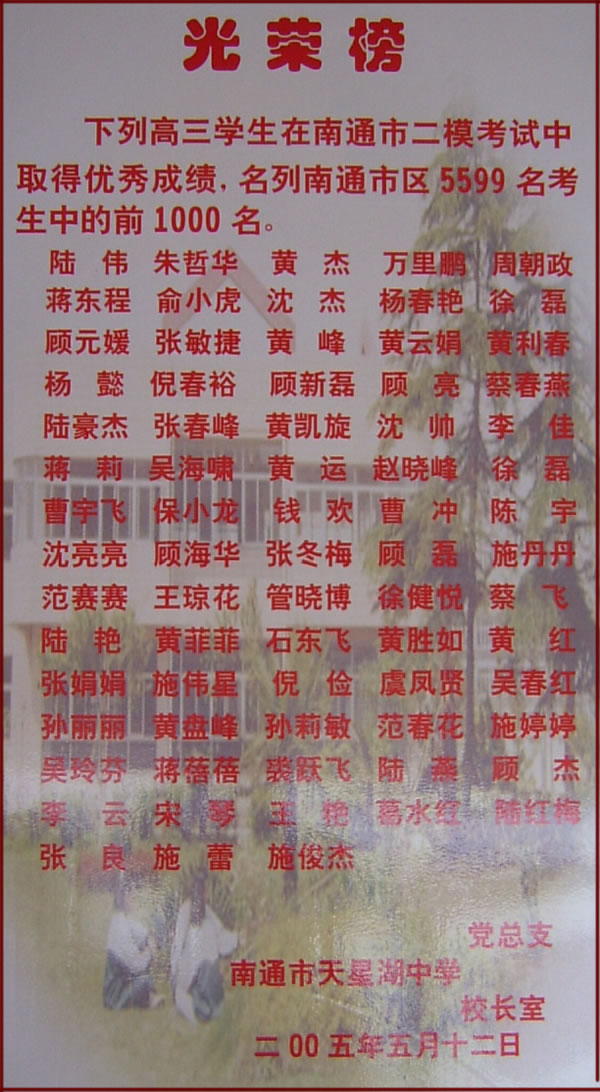 光荣榜
下列高三学生在南通市二模考试中
取得优秀成绩，名列南通市区 5599 名考
生中的前 1000 名。
陆 伟 朱哲华 黄 杰 万里鹏 周朝政
蒋东程 俞小虎 沈 杰 杨春艳 徐 磊
顾元媛 张敏捷 黄 峰 黄云娟 黄利春
杨 懿 倪春裕 顾新磊 顾 亮 蔡春燕
陆豪杰 张春峰 黄凯旋 沈 帅 李 佳
蒋 莉 吴海啸 黄 运 赵晓峰 徐 磊
曹宇飞 保小龙 钱 欢 曹 冲 陈 宇
沈亮亮 顾海华 张冬梅 顾 磊 施丹丹
范赛赛 王琼花 管晓博 徐健悦 蔡 飞
陆 艳 黄菲菲 石东飞 黄胜如 黄 红
张娟娟 施伟星 倪 俭 虞凤贤 吴春红
孙丽丽 黄盘峰 孙莉敏 范春花 施婷婷
吴玲芬 蒋蓓蓓 裘跃飞 陆 燕 顾 杰
李 云 宋 琴 王 艳 葛水红 陆红梅
张 良 施 蕾 施俊杰
党总支
南通市天星湖中学
校长室
二00五年五月十二日